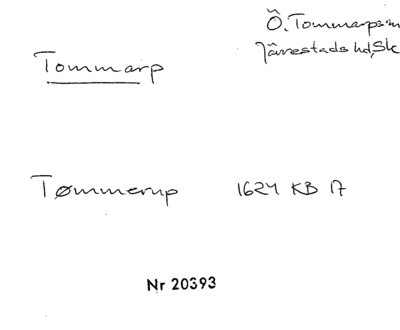 Ö. Tommarps sn
Järrestads hd, Sk
Tommarp
Tømmerup 1624 KB 17
Nr 20393